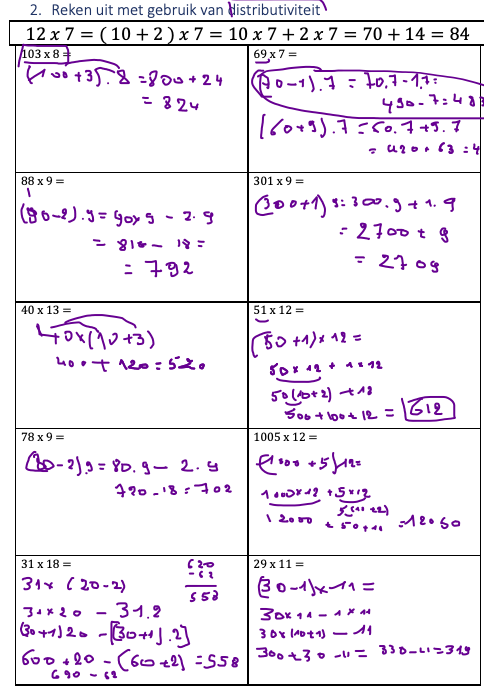 2. Reken uit met gebruik van distributiviteit
12 x 7 = ( 10 + 2 ) x 7 = 10 x 7 + 2 x 7 = 70 + 14 = 84
103 x 8 =
(100+3).8 = 800 + 24
= 824
69 x 7 =
(70-1).7 = 70.7-1.7=
490-7=483
(60+9).7=60.7+9.7
= 420+63=4
88 x 9 =
(90-2).9=90x9 - 2.9
= 810 - 18=
= 792
301 x 9 =
(300+1)9=300.9+1.9
= 2700+9
= 2709
40 x 13 =
40x(10+3)
400+120=520
51 x 12 =
(50+1)x12=
50x12 + 1x12
50(10+2) +12
500+100+12 = 612
78 x 9 =
(80-2)9=80.9- 2.9
720-18=702
1005 x 12 =
(1000+5)12=
1000x12 +5x12
5(10+2)
12000 + 50+10 =12060
31 x 18 =
31x (20-2)
31x20 - 31.2
(30+1)20 -[(30+1).2]
600+20-(60+2)=558
620 - 62
620
-62
558
29 x 11 =
(30-1)x11=
30x11 - 1x11
30x(10+1) - 11
300+30-11= 330-11=319